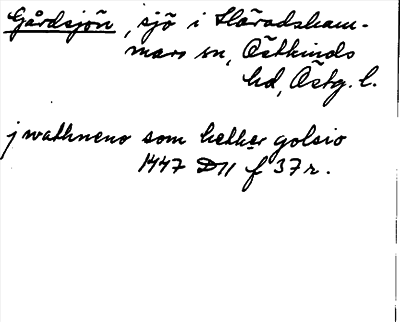 Gårdsjön, sjö i Häradsham-
mars sn, Östkinds
hd, Östg. l.
j wathneno som hether golsio
1447 D11 f 37r.